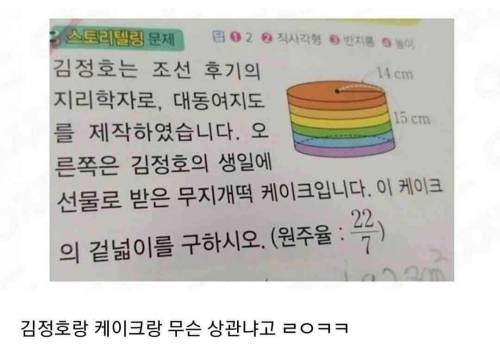 스토리텔링 문제
답 ❶ 2 ❷ 직사각형 ❸ 반지름 ❹ 높이
김정호는 조선 후기의
지리학자로, 대동여지도
를 제작하였습니다. 오
른쪽은 김정호의 생일에
선물로 받은 무지개떡 케이크입니다. 이 케이크
의 겉넓이를 구하시오. (원주율 : 22/7)
14 cm
15 cm
김정호랑 케이크랑 무슨 상관냐고 ㄹㅇㅋㅋ